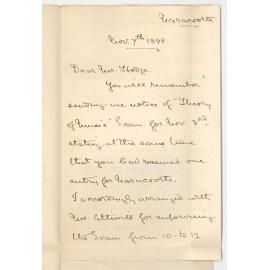 Naracoorte
Nov. 7th 1899
Dear Mr. Hodge
You will remember
sending me notice of "Theory
of Music" Exam. for Nov. 3rd
stating at the same time
that you had received one
entry for Naracoorte.
I accordingly arranged with
Mr. Attiwill for supervising
the Exam. from 10 to 12.